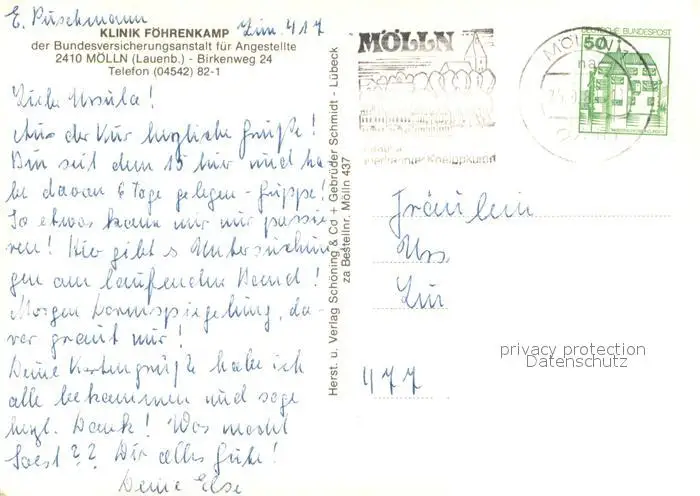 E. Puschmann Zim. 417
KLINIK FÖHRENKAMP
der Bundesversicherungsanstalt für Angestellte
2410 MÖLLN (Lauenb.) - Birkenweg 24
Telefon (04542) 82-1
Liebe Ursula!
Aus der Kur herzliche Grüße!
Bin seit dem 15 hier und ha-
be davon 6 Tage gelegen - Grippe!
So etwas kann nur mir passie-
ren! Hier gibt s Untersuchun
gen am laufenden Band!
Morgen Darmspiegelung, da-
vor graut mir!
Deine Kartengrüße habe ich
alle bekommen und sage
herzl. Dank! Was macht
Soest?? Dir alles Gute!
Deine Else
Herst. u. Verlag Schöning & Co + Gebrüder Schmidt - Lübeck
zu Bestellnr. Mölln 437
MÖLLN
Kneippkurort
MÖLLN
DEUTSCHE BUNDESPOST
50
Fräulein
Urs
Zur
477
privacy protection
Datenschutz